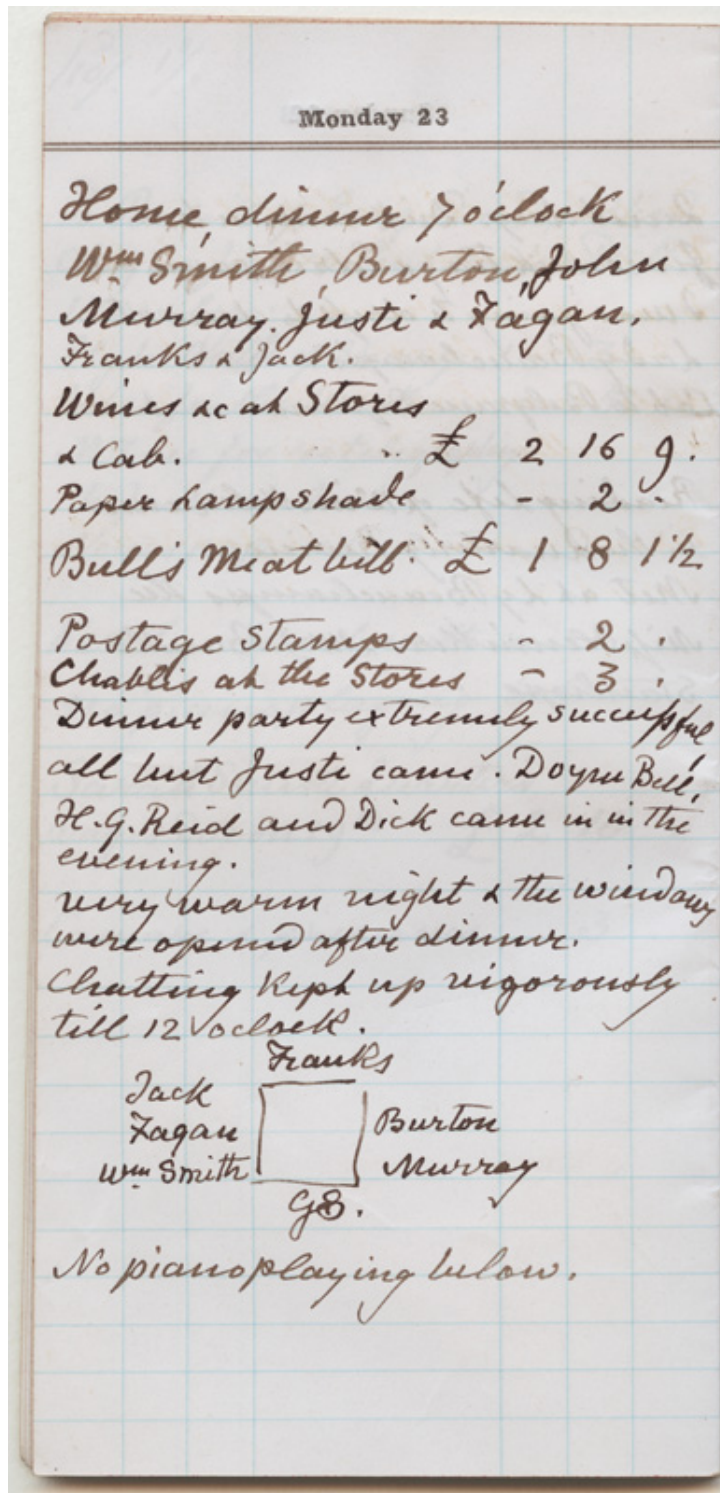 Monday 23
Home, dinner 7 o'clock
Wm Smith, Burton, John
Murray. Justi & Fagan.
Franks & Jack.
Wines &c at Stores
& Cab. £ 2 16 9.
Paper Lampshade - 2 -
Bull's Meat bill. £ 1 8 1½
Postage Stamps - 2 .
Chablis at the Stores - 3 .
Dinner party extremely successful,
all but Justi came. Doyne Bell,
H.G. Reid and Dick came in in the
evening.
very warm night & the windows
were opened after dinner.
Chatting kept up vigorously
till 12 oclock.
Franks
Jack
Fagan Burton
Wm Smith Murray
GS.
No pianoplaying below.